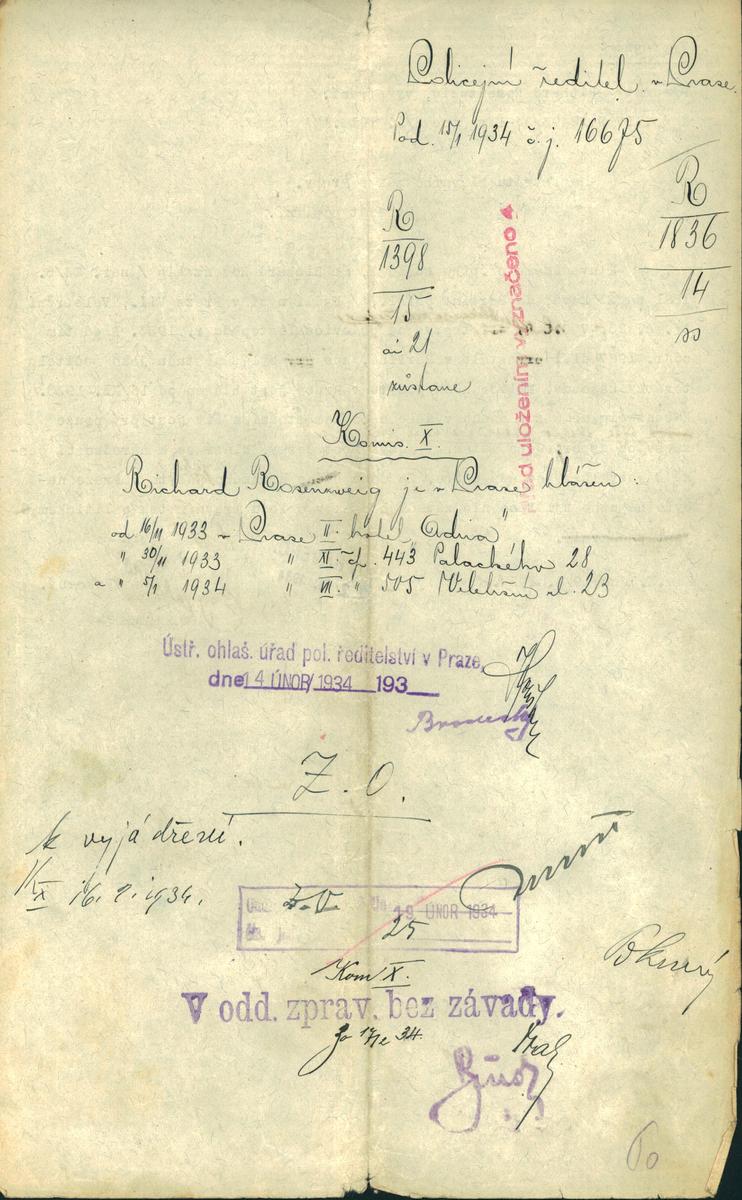 Policejní ředitel. v Praze.
Pod. 15/1 1934 č. j. 16675
R
1398
15
ai 21
zůstane
R
1836
14
před uložením vyznačeno
Komis. X.
Richard Rosenzweig je v Praze hlášen:
od 16/11 1933 v Praze II. hotel „Adria"
" 30/11 1933 " XII. čp. 443 Palackého 28
a " 5/1 1934 " VII. " 505 Veletržní ul. 23
Ústř. ohlaš. úřad pol. ředitelství v Praze,
dne 14 ÚNOR 1934 193
Z. O.
k vyjádření.
K X 16. 2. 1934.
19 ÚNOR 1934
25
Kom X.
V odd. zprav. bez závady.